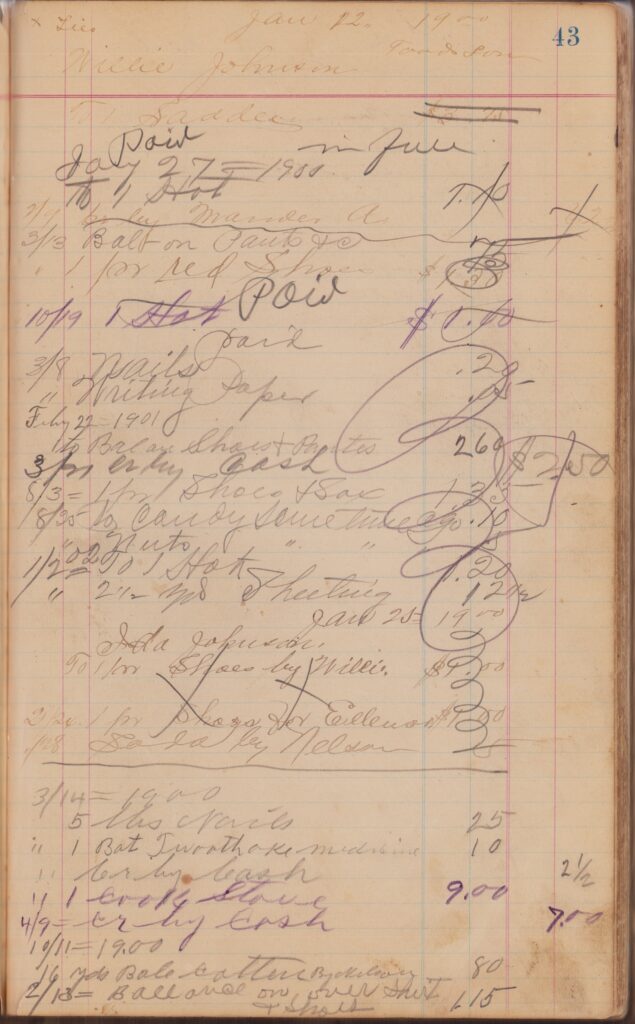 Jan 12. 1900
43
Willie Johnson
To 1 Sadd
Paid
in full
July 27 = 1900
To 1 Hat
by
3/13 Bal on Pants &c
" 1 pr red Shoes $1.30
Paid
10/19 1 Hat $1.10
paid
3/8 Nails .20
" Writing Paper .05
Feby 22 = 1901
to Balan Shoes & Pantes 260 $2.50
3 pr cr by Cash
8/3 = 1 pr Shoes & Sox 1.25
8/35 to Candy sometime ago .10
" Nuts " " 5
1/2 = 02 To 1 Hat 1.20
" 2 1/2 yds Sheeting 12 1/2
Jan 25 = 1900
Ida Johnson.
To 1 pr Shoes by Willie $1.00
1 pr Shoes for $1.00
Soda by Nelson 5
3/14 = 1900
5 lbs Nails 25
" 1 Bot Twoothake medicine 10
" Cr by Cash 2 1/2
" 1 Cook Stove 9.00
4/9 = cr by Cash 7.00
10/11 = 19.00
16 yds Bale Cotten By 80
2/13 = Ballance on over Shirt 1.15
& Shoes